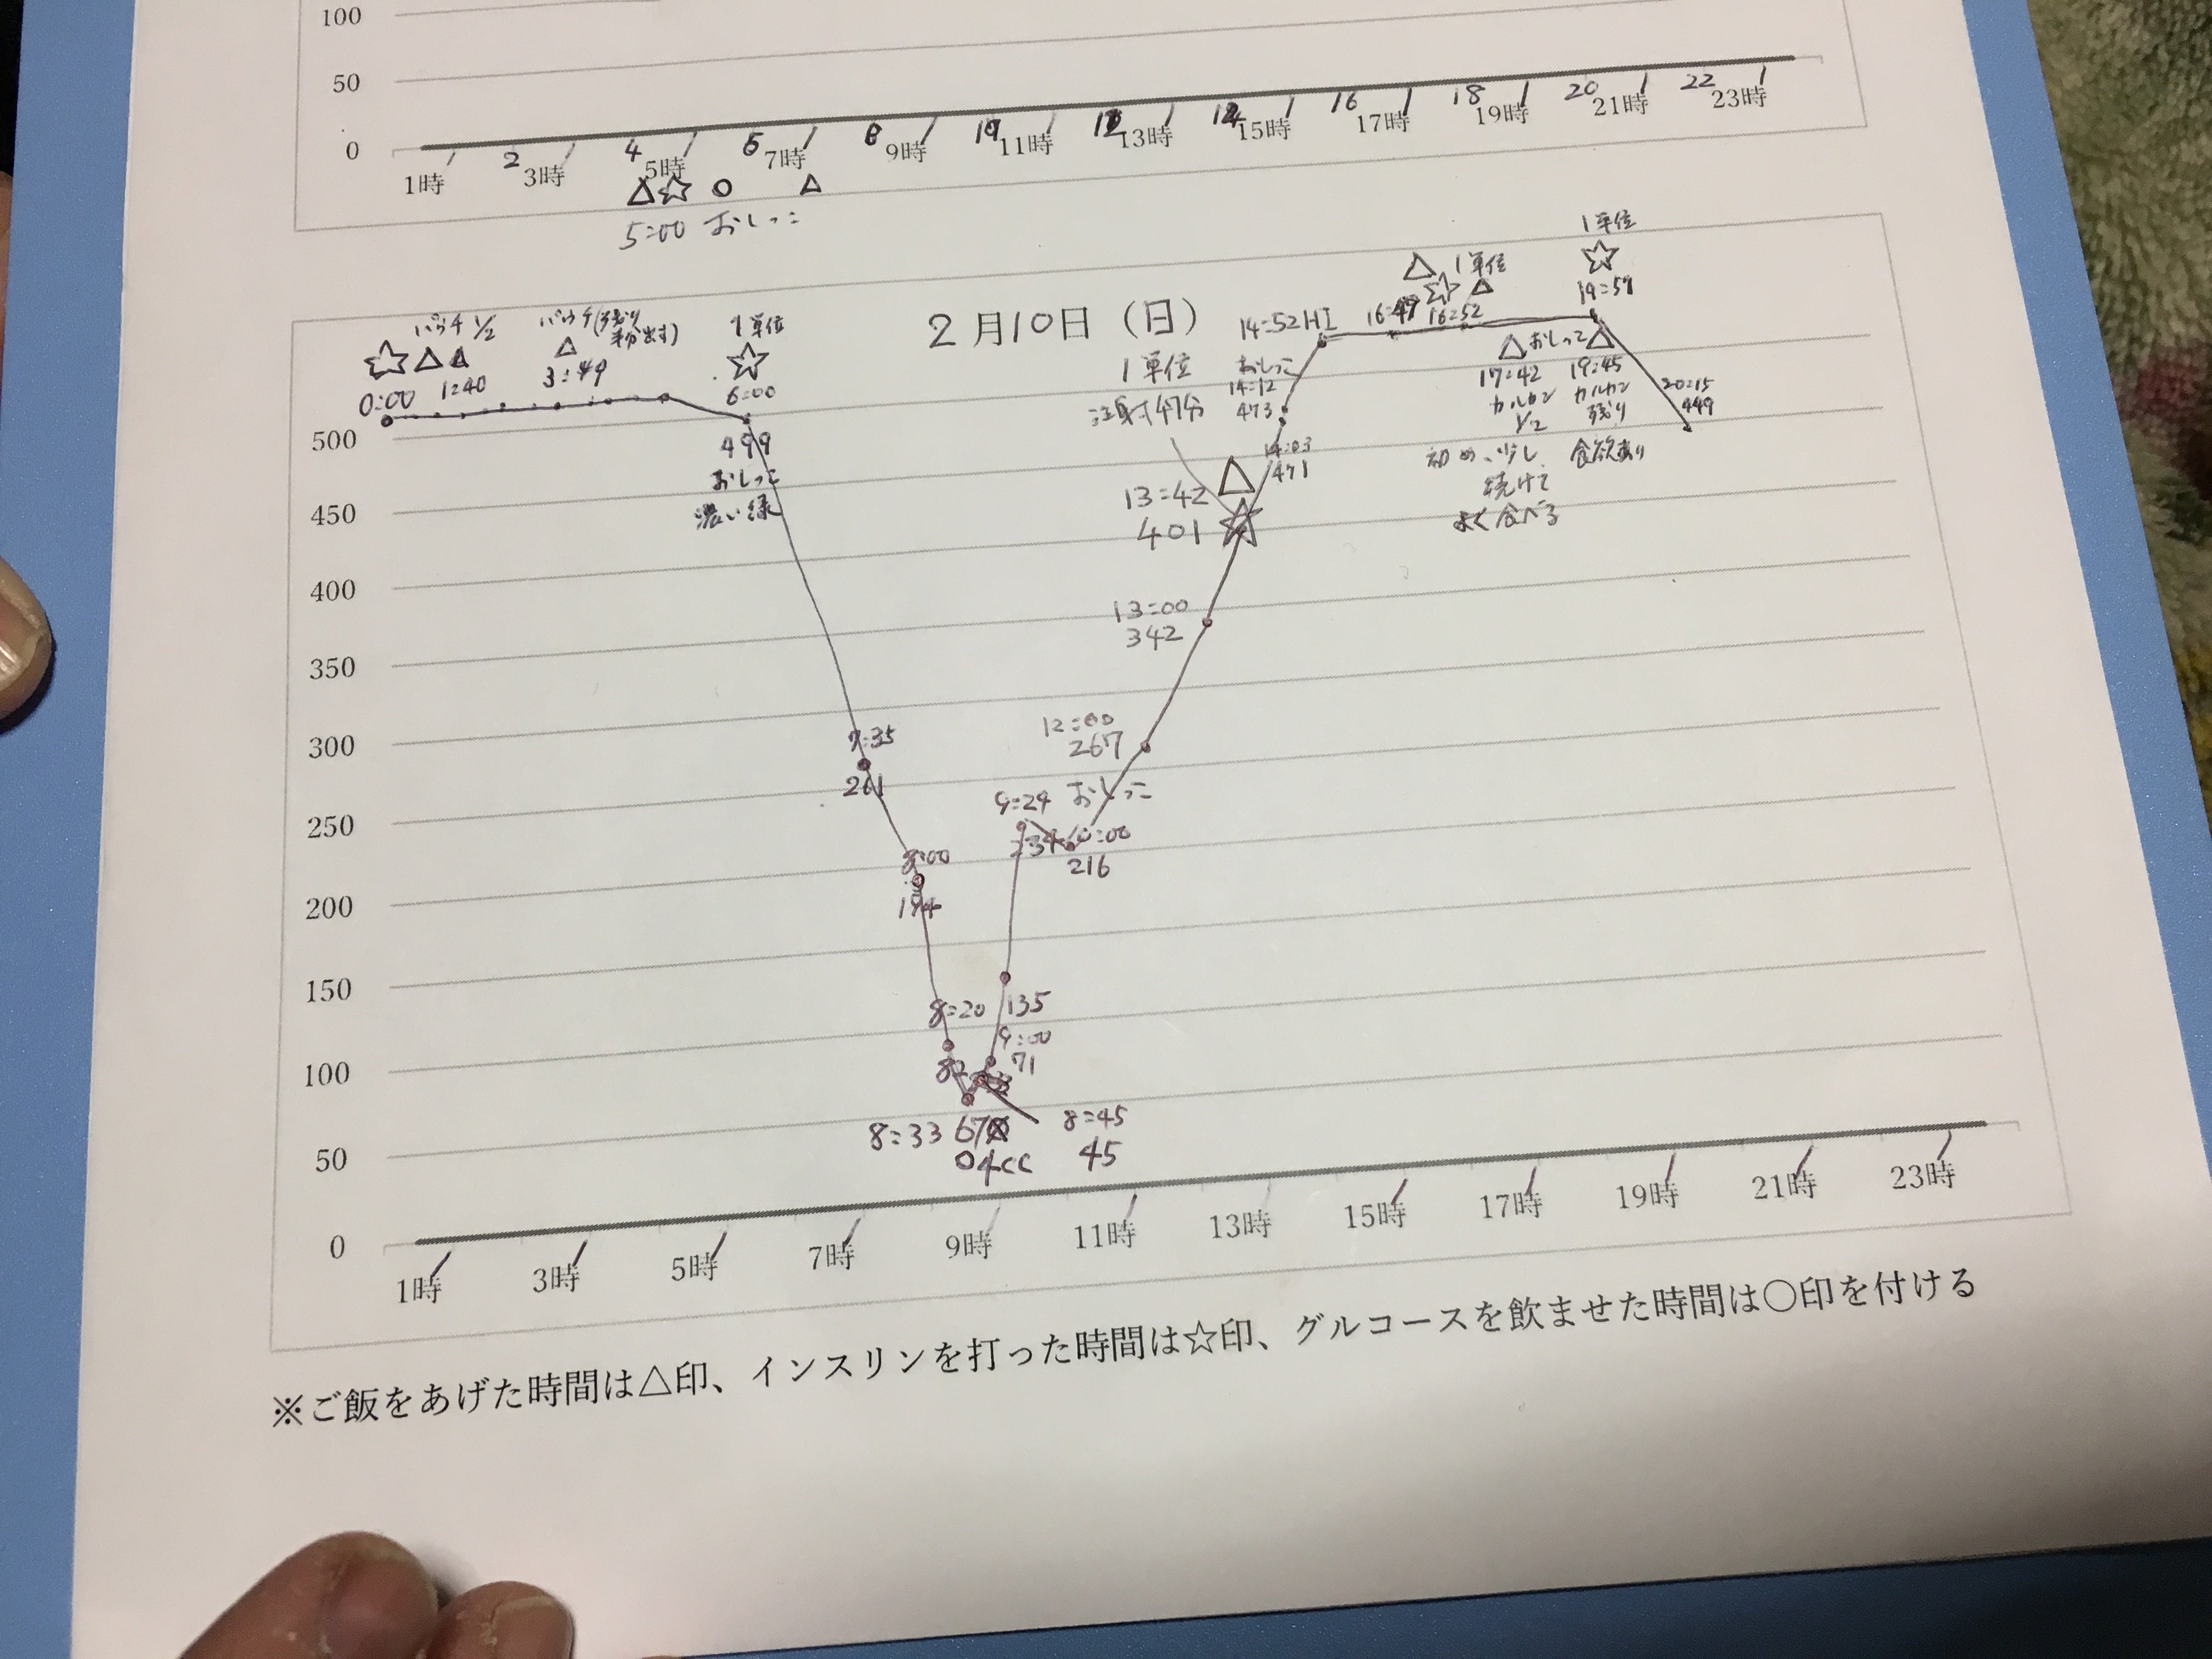 100
50
0
1時 2 3時 4 5時 6 7時 8 9時 10 11時 12 13時 14 15時 16 17時 18 19時 20 21時 22 23時
△☆ ○ △
5:00 おしっこ
2月10日（日）
パウチ 1/2
☆△△
0:00 1:40
パウチ(残り
△
3:49
1単位
☆
6:00
499
おしっこ
濃い緑
7:35
261
8:00
194
8:20
82
8:33 67
○4cc
8:45
45
9:00
71
135
9:24
234
おしっこ
10:00
216
12:00
267
13:00
342
1単位
注射47分
13:42 △
401 ☆
14:03
471
おしっこ
14:12
473
14:52 HI
△ 1単位
☆ △
16:49 16:52
1単位
☆
19:57
△ おしっこ △
17:42
カルカン
1/2
初め、少し
続けて
よく食べる
19:45
カルカン
残り
食欲あり
20:15
449
500
450
400
350
300
250
200
150
100
50
0
1時 3時 5時 7時 9時 11時 13時 15時 17時 19時 21時 23時
※ご飯をあげた時間は△印、インスリンを打った時間は☆印、グルコースを飲ませた時間は○印を付ける